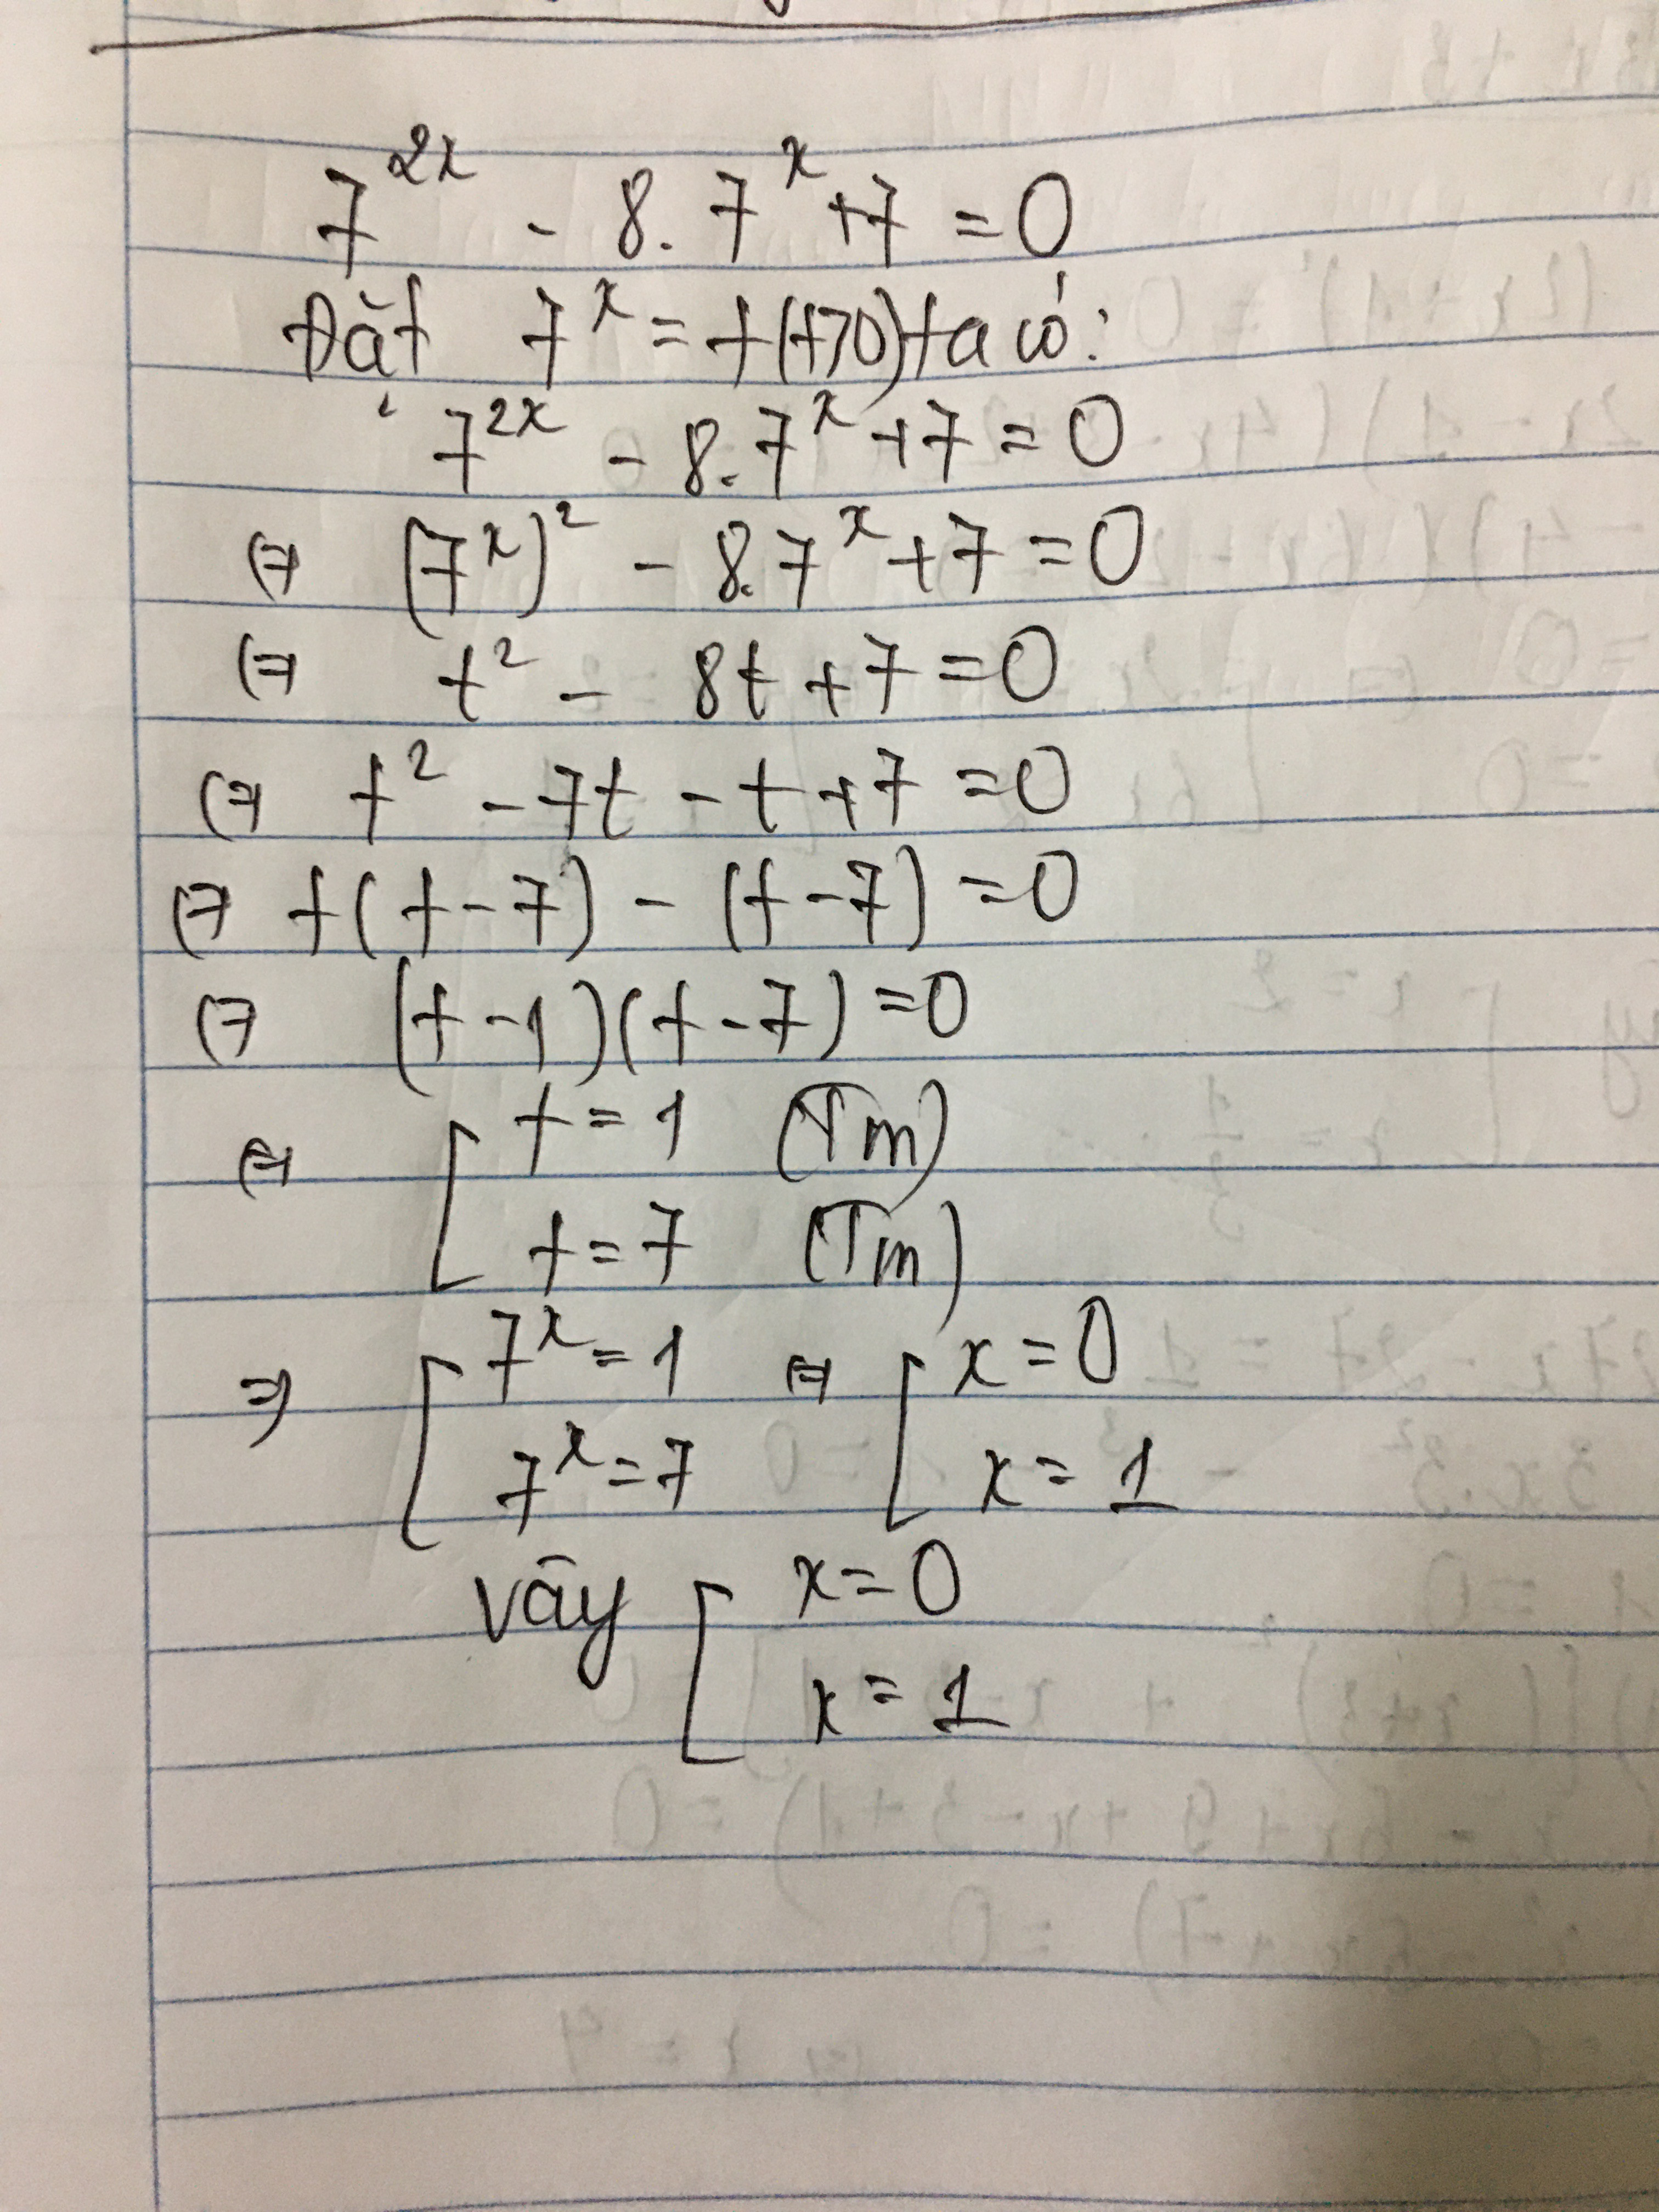 7^{2x} - 8.7^x + 7 = 0
Đặt 7^x = t (t>0) ta có:
7^{2x} - 8.7^x + 7 = 0
⇔ (7^x)^2 - 8.7^x + 7 = 0
⇔ t^2 - 8t + 7 = 0
⇔ t^2 - 7t - t + 7 = 0
⇔ t(t-7) - (t-7) = 0
⇔ (t-1)(t-7) = 0
⇔ [ t = 1 (Tm)
t = 7 (Tm)
⇒ [ 7^x = 1 ⇔ [ x = 0
7^x = 7 x = 1
vậy [ x = 0
x = 1